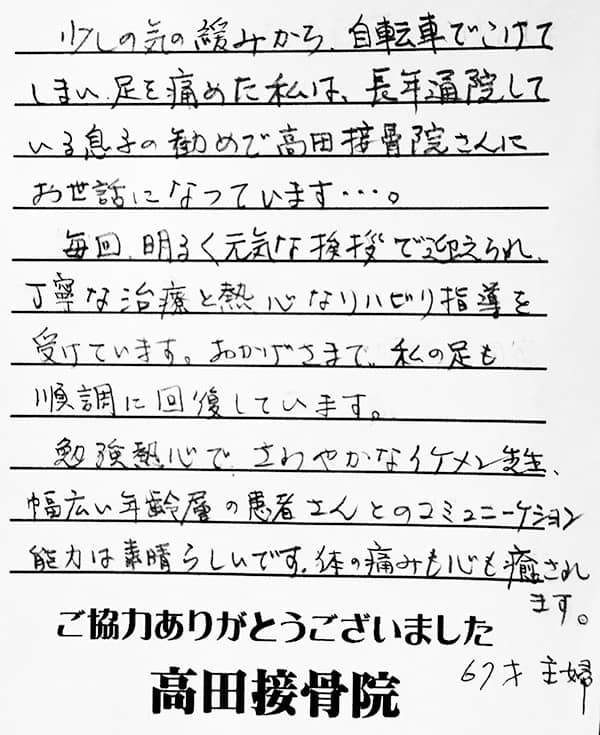 少しの気の緩みから、自転車でこけて
しまい、足を痛めた私は、長年通院して
いる息子の勧めで高田接骨院さんに
お世話になっています・・・。
毎回、明るく元気な挨拶で迎えられ、
丁寧な治療と熱心なリハビリ指導を
受けています。おかげさまで、私の足も
順調に回復しています。
勉強熱心で、さわやかなイケメン先生、
幅広い年齢層の患者さんとのコミュニーケション
能力は素晴らしいです。体の痛みも心も癒され
ます。
ご協力ありがとうございました
高田接骨院
67才 主婦